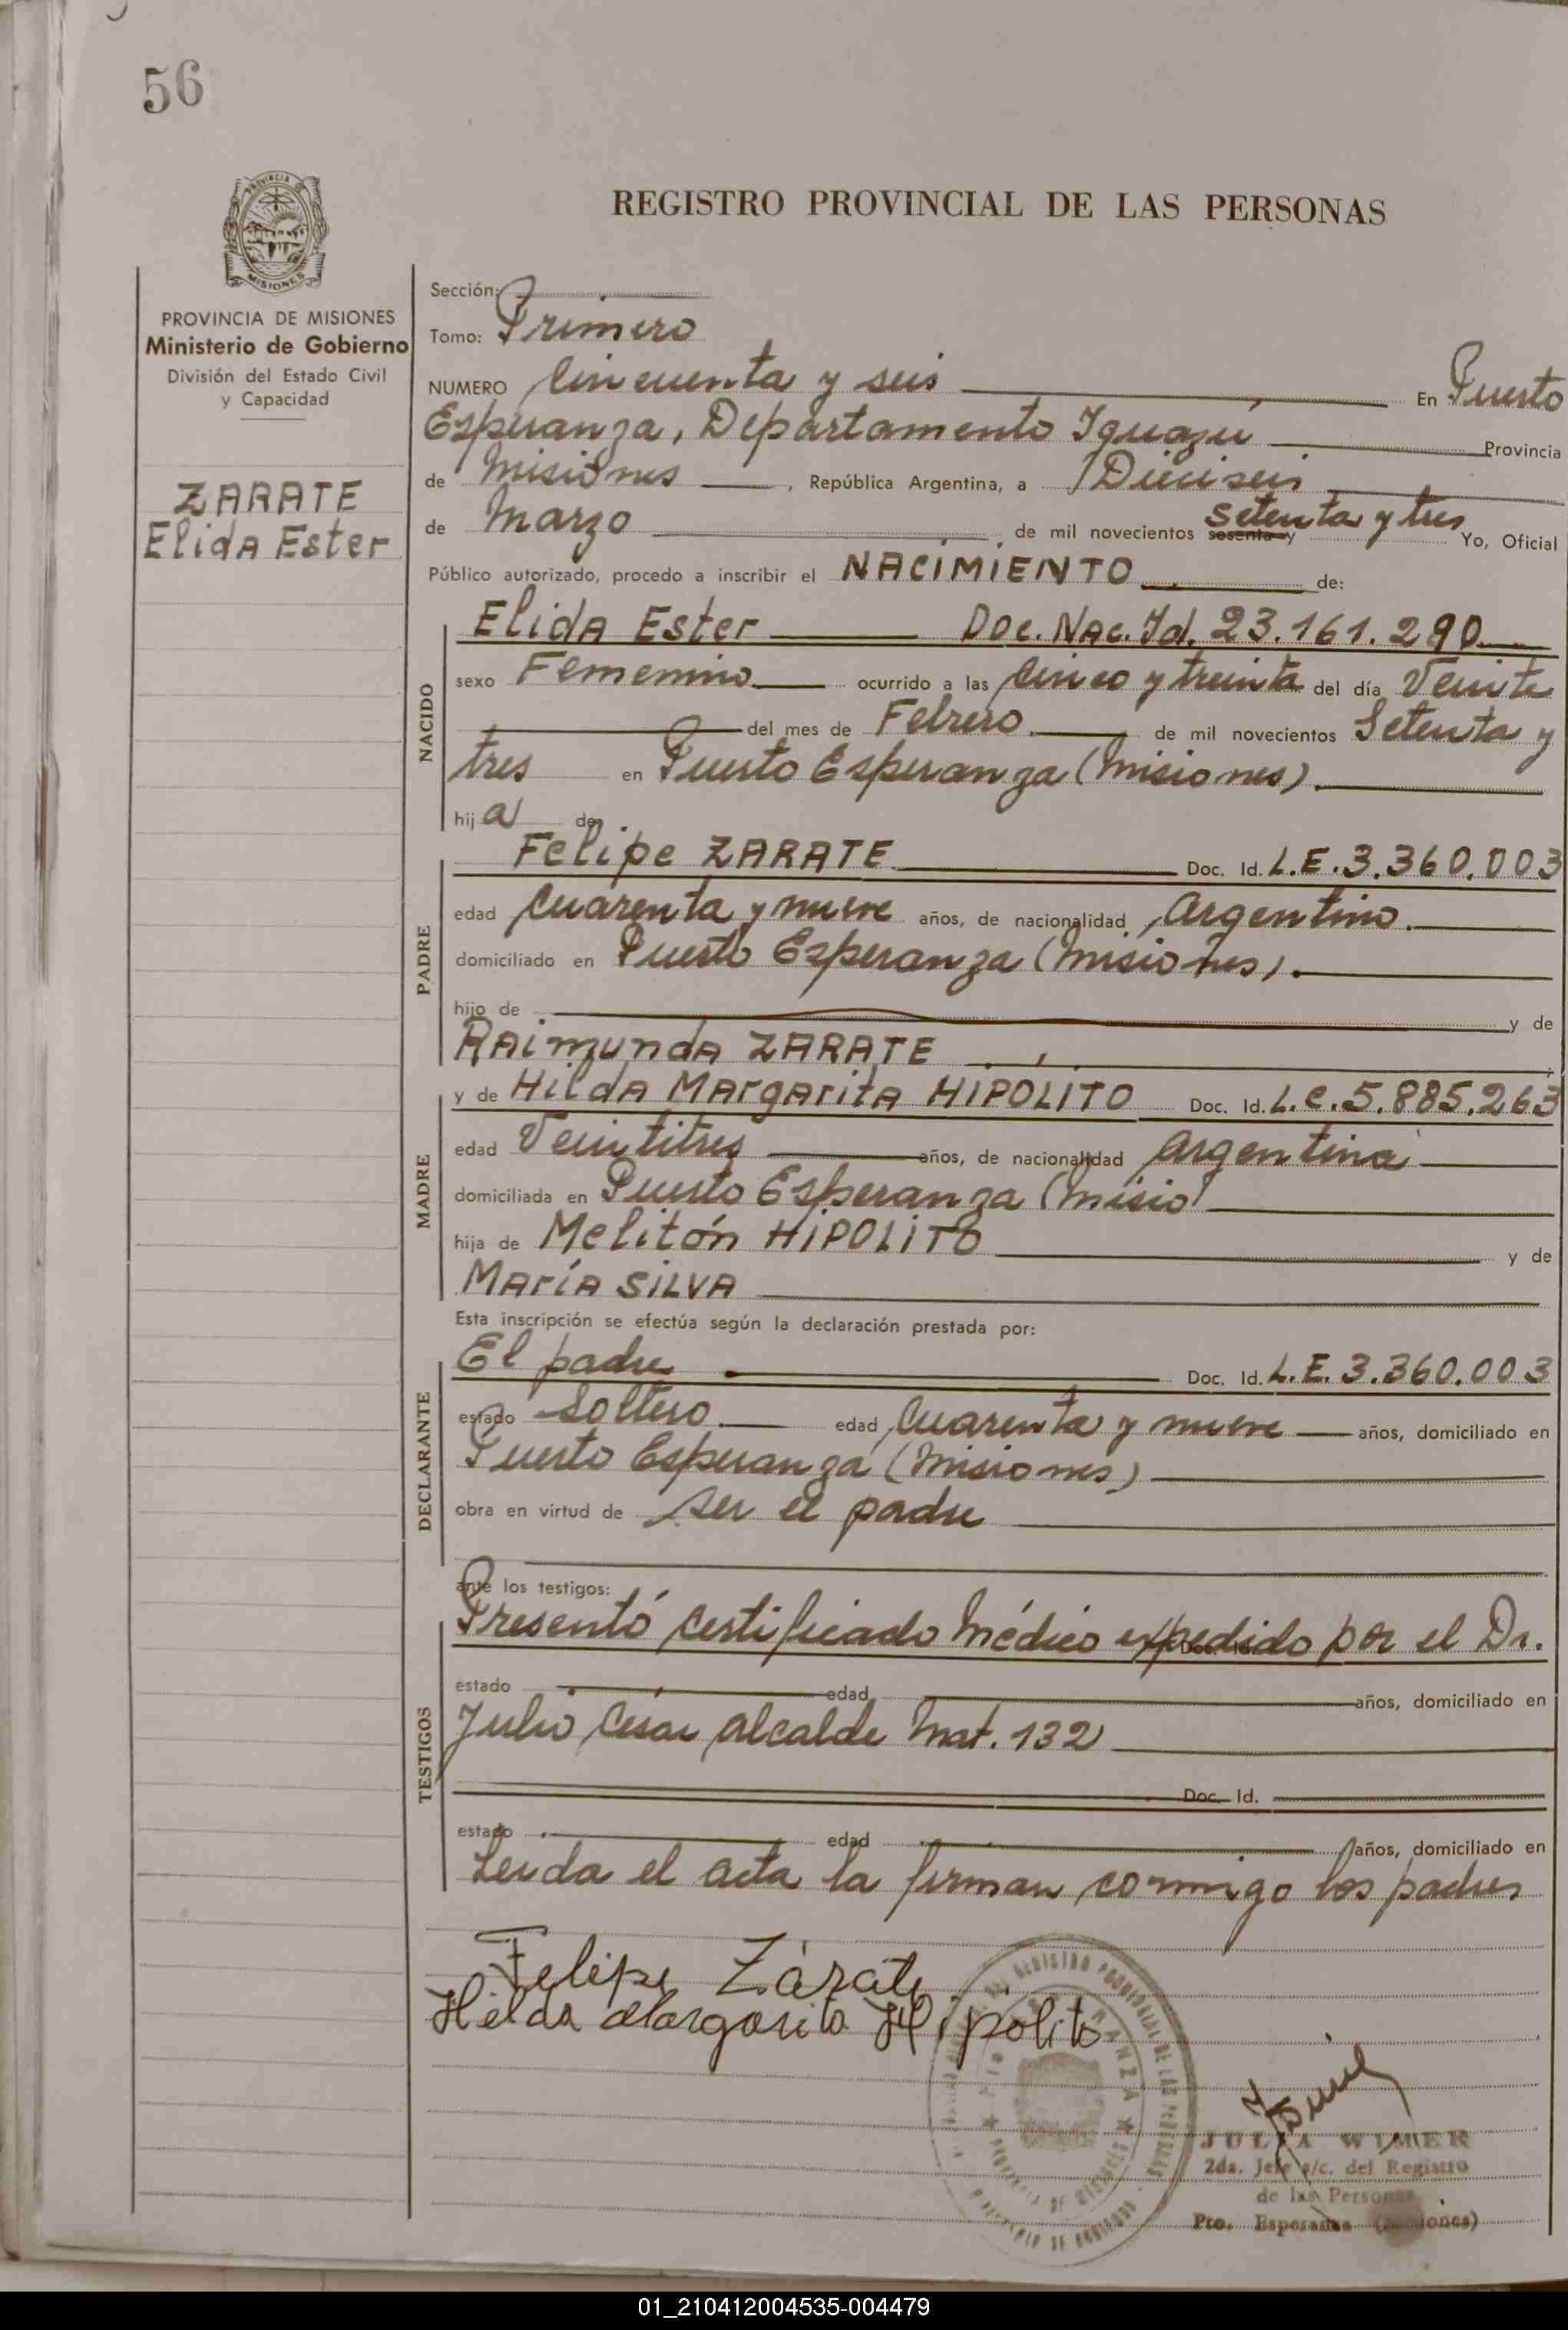 56
PROVINCIA DE
MISIONES
REGISTRO PROVINCIAL DE LAS PERSONAS
PROVINCIA DE MISIONES
Ministerio de Gobierno
División del Estado Civil
y Capacidad
ZARATE
Elida Ester
Sección:
Tomo: Primero
NUMERO Cincuenta y seis En Puerto
Esperanza, Departamento Iguazú Provincia
de Misiones, República Argentina, a Dieciseis
de Marzo de mil novecientos sesenta y Setenta y tres Yo, Oficial
Público autorizado, procedo a inscribir el NACIMIENTO de:
NACIDO
Elida Ester Doc. Nac. Id. 23.161.290
sexo Femenino ocurrido a las Cinco y treinta del día Veinte
del mes de Febrero de mil novecientos Setenta y
tres en Puerto Esperanza (Misiones).
hij a de
PADRE
Felipe ZARATE Doc. Id. L.E. 3.360.003
edad Cuarenta y nueve años, de nacionalidad Argentino.
domiciliado en Puerto Esperanza (Misiones).
hijo de y de
Raimunda ZARATE
MADRE
y de Hilda Margarita HIPÓLITO Doc. Id. L.C. 5.885.263
edad Veintitres años, de nacionalidad Argentina
domiciliada en Puerto Esperanza (Misio)
hija de Melitón HIPOLITO y de
María SILVA
Esta inscripción se efectúa según la declaración prestada por:
DECLARANTE
El padre Doc. Id. L.E. 3.360.003
estado Soltero edad Cuarenta y nueve años, domiciliado en
Puerto Esperanza (Misiones)
obra en virtud de ser el padre
ante los testigos:
TESTIGOS
Presentó Certificado Médico expedido por el Dr.
estado edad años, domiciliado en
Julio César Alcalde Mat. 132
Doc. Id.
estado edad años, domiciliado en
Leida el acta la firman conmigo los padres
Felipe Zárate
Hilda Margarita Hipólito
JULIA WIMER
2da. Jefe a/c. del Registro
de las Personas
Pto. Esperanza (Misiones)
01_210412004535-004479